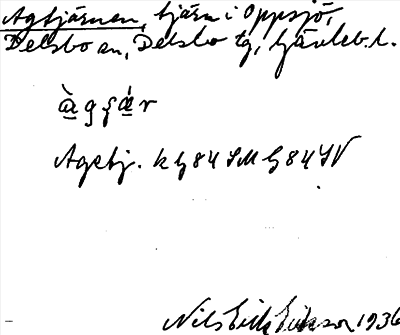 Agtjärnen, tjärn i Oppsjö,
Delsbo sn, Delsbo tg, Gävleb. l.
Agetj. k G84 SM G84 SV
Nils Erik Erikson 1936